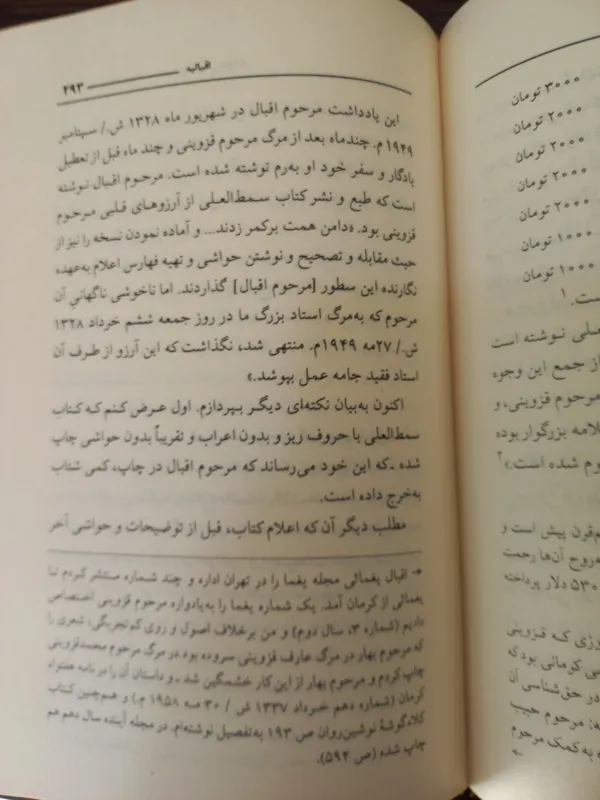 اقبالیه ــــــــــــ ۲۹۳
این یادداشت مرحوم اقبال در شهریور ماه ۱۳۲۸ ش./ سپتامبر
۱۹۴۹ م. چندماه بعد از مرگ مرحوم قزوینی و چند ماه قبل از تعطیل
یادگار و سفر خود او به‌رم نوشته شده است. مرحوم اقبال نوشته
است که طبع و نشر کتاب سمط‌العلی از آرزوهای قلبی مرحوم
قزوینی بود. «دامن همت برکمر زدند... و آماده نمودن نسخه را نیز از
حیث مقابله و تصحیح و نوشتن حواشی و تهیه فهارس اعلام به‌عهده
نگارنده این سطور [مرحوم اقبال] گذاردند. اما ناخوشی ناگهانی آن
مرحوم که به‌مرگ استاد بزرگ ما در روز جمعه ششم خرداد ۱۳۲۸
ش./ ۲۷مه ۱۹۴۹م. منتهی شد، نگذاشت که این آرزو از طرف آن
استاد فقید جامه عمل بپوشد.»
اکنون به‌بیان نکته‌ای دیگر بپردازم. اول عرض کنم که کتاب
سمط‌العلی با حروف ریز و بدون اعراب و تقریباً بدون حواشی چاپ
شده ـ‌که این خود می‌رساند که مرحوم اقبال در چاپ، کمی شتاب
به‌خرج داده است.
مطلب دیگر آن که اعلام کتاب، قبل از توضیحات و حواشی آخر
→ اقبال یغمائی مجله یغما را در تهران اداره و چند شماره منتشر کردم تا
یغمائی از کرمان آمد. یک شماره یغما را به‌یادواره مرحوم قزوینی اختصاص
دادیم (شماره ۳، سال دوم) و من برخلاف اصول و روی کم‌تجربگی، شعری را
که مرحوم بهار در مرگ عارف قزوینی سروده بود در مرگ مرحوم محمدقزوینی
چاپ کردم و مرحوم بهار از این کار خشمگین شد ـ و داستان آن را در نامه هفتواد
کرمان (شماره دهم خرداد ۱۳۳۷ ش / ۳۰ مه ۱۹۵۸ م.) و همچنین کتاب
کلاه‌گوشهٔ نوشین‌روان ص ۱۹۳ به‌تفصیل نوشته‌ام. در مجله آینده سال دهم هم
چاپ شده (ص ۵۹۴).
۳۰۰۰ تومان
۲۰۰۰ تومان
۲۰۰۰ تومان
۲۰۰۰ تومان
۲۰۰۰ تومان
۱۰۰۰ تومان
۱۰۰۰ تومان
ست.۱
ملی نوشته است
از جمع این وجوه
مرحوم قزوینی، و
لامه بزرگوار بوده
وم شده است.»۲
م‌قرن پیش است و
به‌روح آن‌ها رحمت
۵۳۰ دلار پرداخته
وزی که قزوینی
سی کرمانی بود که
در حق‌شناسی آن
ه: مرحوم حبیب
ه به‌کمک مرحوم